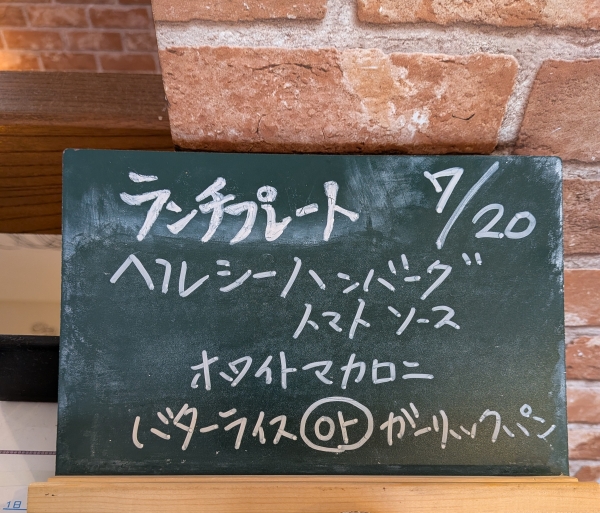 ランチプレート 7/20
ヘルシーハンバーグ
トマトソース
ホワイトマカロニ
バターライス or ガーリックパン
1日